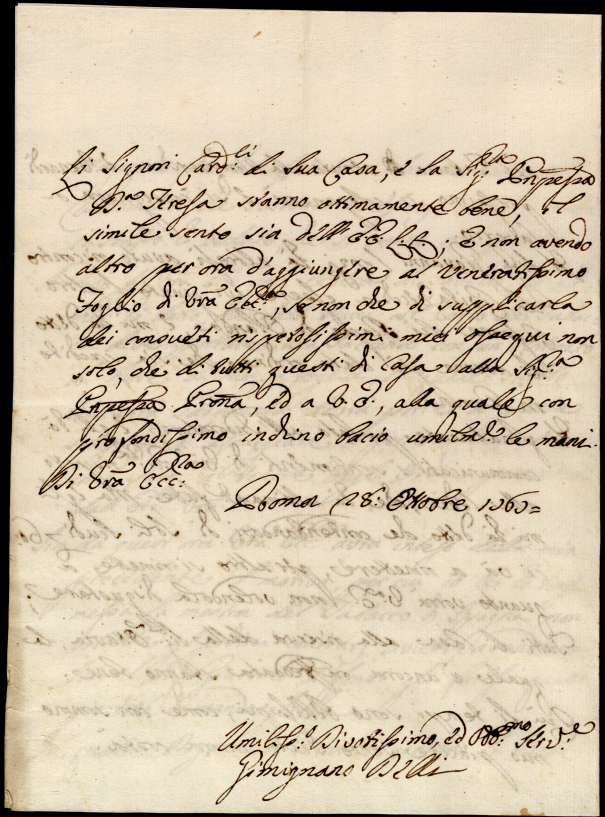 Li Signori Card:li di Sua Casa, e la Sig:ra Pnpessa
D:a Teresa stanno ottimamente bene, il
simile sento sia dell' EE. LL.; E non avendo
altro per ora d'aggiungere al veneratissimo
Foglio di Vra Ecc:za, se non che di supplicarla
dei consueti rispettosissimi miei ossequi non
solo, che di tutti questi di Casa alla Sig:ra
Pnpessa Prona, ed a V. E., alla quale con
profondissimo inchino bacio umilm:e le mani.
Di Vra Ecc:za
Roma 28: Ottobre 1767=
Umiliss:o Divotissimo, ed Obb:mo Serv:e
Gimignano Belli